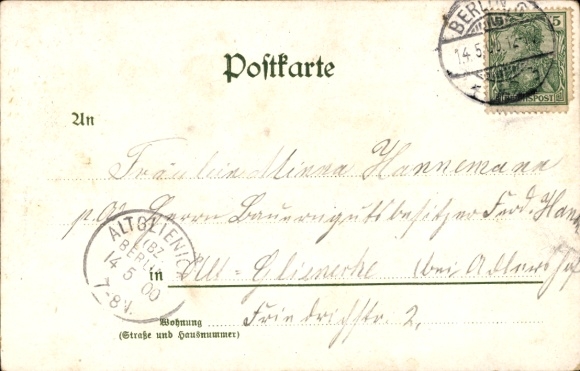 BERLIN
14.5.00
5
REICHSPOST
Postkarte
An
Fräulein Minna Hannemann
p. Ad. Herrn Bauerngutsbesitzer Ferd. Hann
ALTGLIENICKE
(BZ.
BERLIN)
14 5 00
7-8V.
in Alt-Glienecke (bei Adlershof
Wohnung Friedrichstr. 2,
(Straße und Hausnummer)